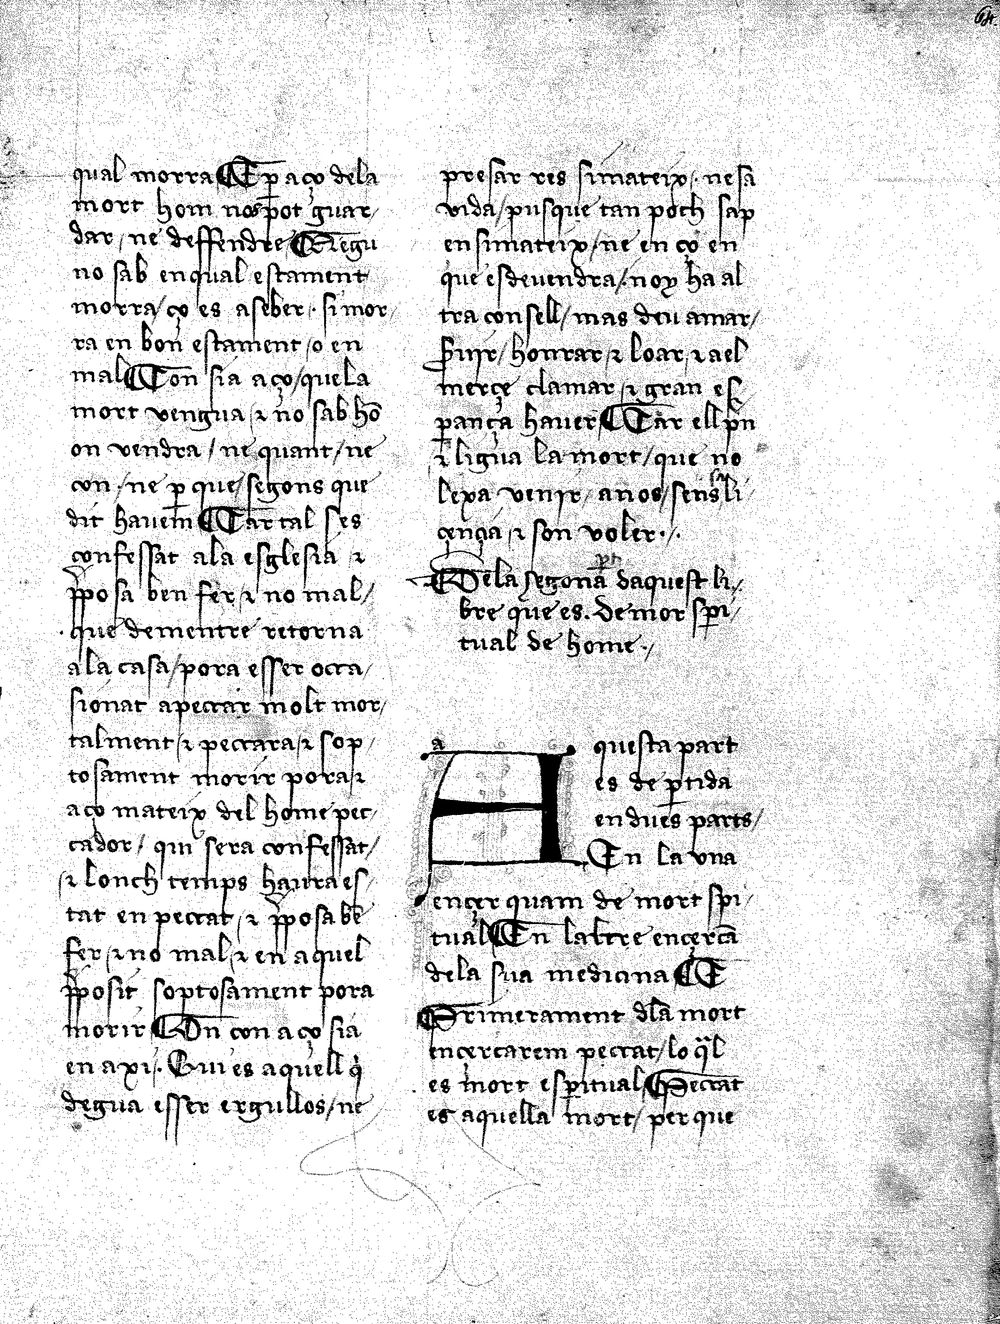 64.
qual morra E ꝑ aço dela
mort hom nos pot guar/
dar / ne deffendre Negu
no sab enqual estament
morra / ço es aseber · si mor/
ra en bon estament / o en
mal Con sia aço / que la
mort vengua / ⁊ no sab hō
on vendra / ne quant / ne
con / ne ꝑ que / segons que
dit havem Car tal ses
confessat ala esglesia ⁊
ꝓposa ben fer / ⁊ no mal /
que dementre retorna
ala casa / pora esser occa/
sionat apeccar molt mor/
talment / ⁊ peccara / ⁊ sop/
tosament morir pora / ⁊
aço mateix del home pec/
cador / qui sera confessat /
⁊ lonch temps haura es/
tat en peccat / ⁊ ꝓposa bē
fer / ⁊ no mal / ⁊ en aquel
ꝓposit soptosament pora
morir On con aço sia
en axi · Qui es aquell q̇
degua esser ergullos / ne
presar res simateix · ne sa
vida / pusque tan poch sap
en simateix / ne en ço en
que esdevendra / noy ha al
tra consell / mas deu amar /
ẜuir / honrar ⁊ loar / ⁊ a el
merçe clamar / ⁊ gran es
ꝑança haver Car ell pn̄
⁊ ligua la mort / que no
lexa venir / a nos / sens sa li/
cençia / ⁊ son voler · / ·
Dela segona ꝑt daquest li/
bre que es · de mor spi/
tual de home · /
a
Aquesta part
es de ꝑtida
en dues parts /
En la vna
encer quam de mort spi/
tual En laltre encercā
dela sua medicina E
Primerament dla mort
encercarem peccat / lo q̄l
es mort espiritual Peccat
es aquella mort / per que